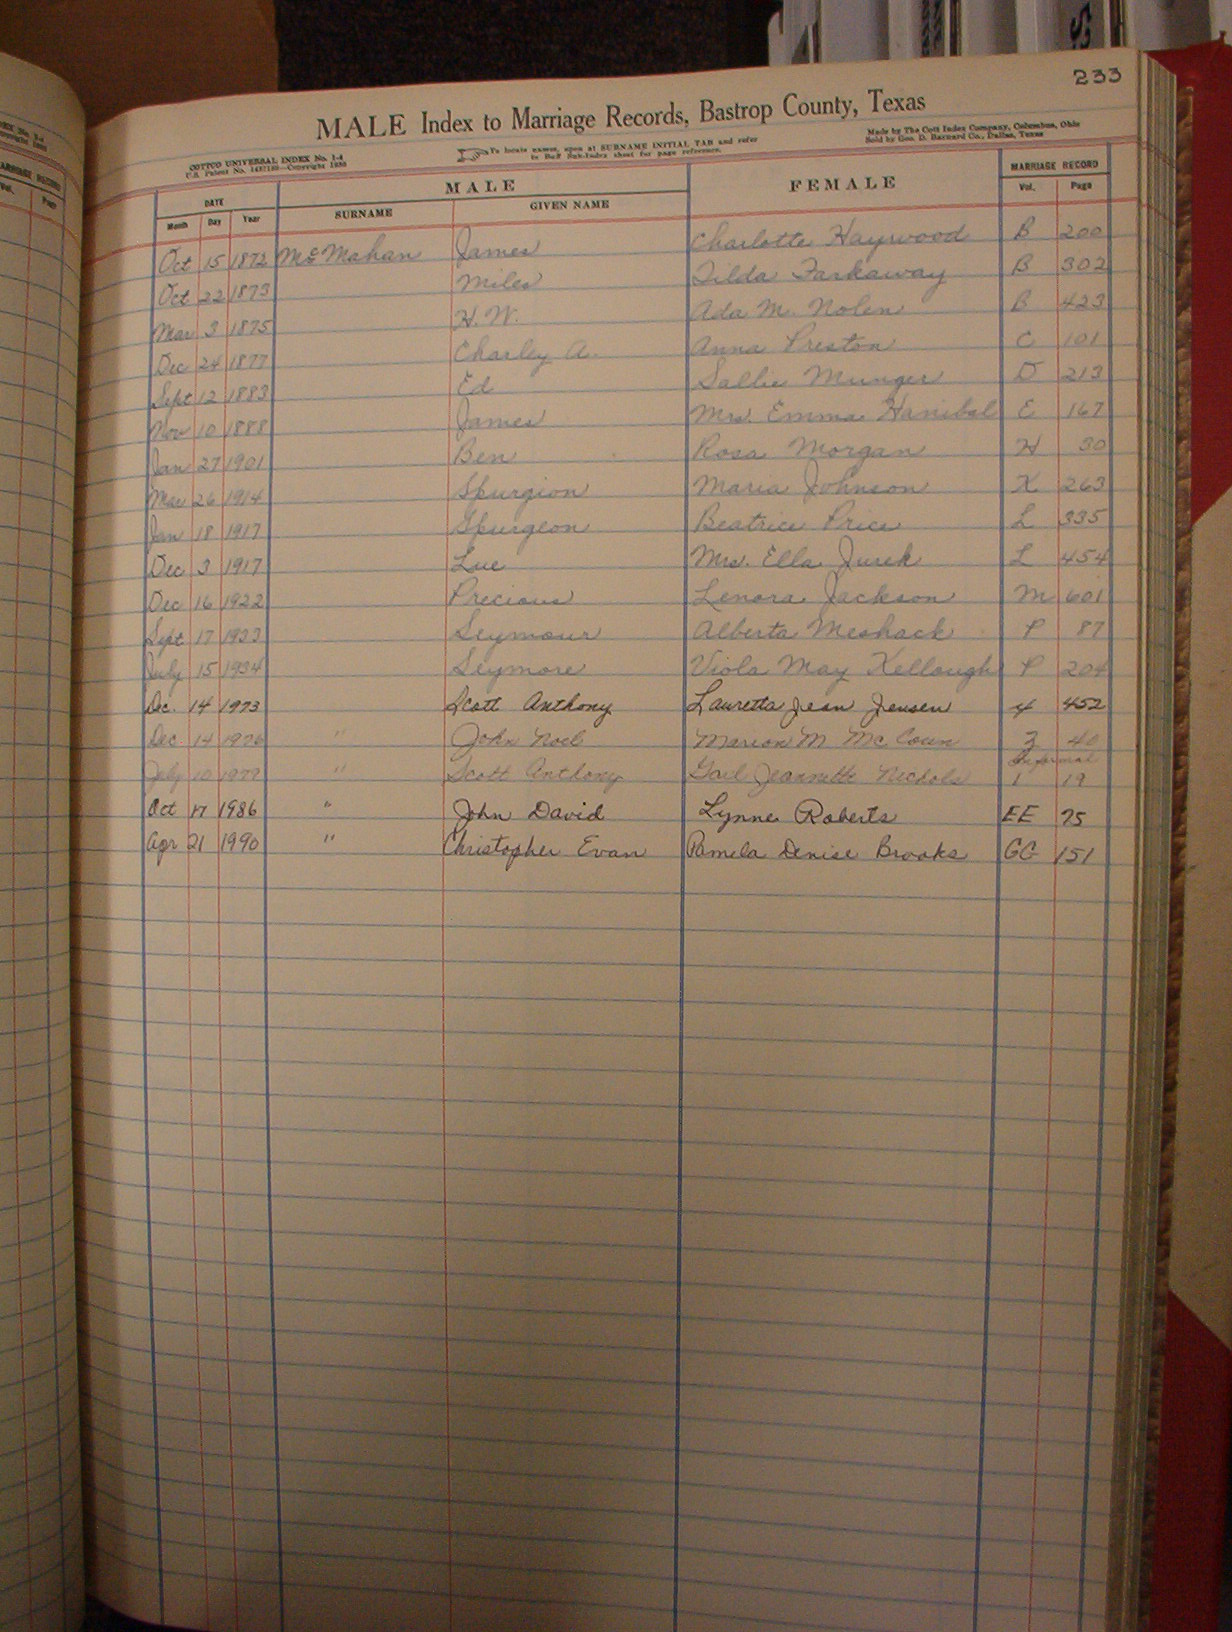 233
MALE Index to Marriage Records, Bastrop County, Texas
COTTCO UNIVERSAL INDEX No. 1-4
To locate names, open at SURNAME INITIAL TAB and refer
to Buff Sub-Index sheet for page reference.
Made by The Cott Index Company, Columbus, Ohio
Sold by Geo. D. Barnard Co., Dallas, Texas
DATE MALE FEMALE MARRIAGE RECORD
Month Day Year SURNAME GIVEN NAME Vol. Page
Oct 15 1872 McMahan James Charlotte Haywood B 200
Oct 22 1873 Miles Tilda Farkaway B 302
Mar 3 1875 H. W. Ada M. Nolen B 423
Dec 24 1877 Charley A. Anna Preston C 101
Sept 12 1883 Ed Sallie Munger D 213
Nov 10 1888 James Mrs. Emma Hanibal E 167
Jan 27 1901 Ben Rosa Morgan H 30
Mar 26 1914 Spurgion Maria Johnson K 263
Jan 18 1917 Spurgeon Beatrice Price L 335
Dec 3 1917 Lue Mrs. Ella Jurek L 454
Dec 16 1922 Precious Lenora Jackson M 601
Sept 17 1933 Seymour Alberta Meshack P 87
July 15 1934 Seymore Viola May Kellough P 204
Dec. 14 1973 Scott Anthony Lauretta Jean Jensen 4 452
Dec 14 1976 " John Noel Marion M McCown 7 40
Informal
July 10 1977 " Scott Anthony Gail Jeannette Nichols 1 19
Oct 17 1986 " John David Lynne Roberts EE 75
Apr 21 1990 " Christopher Evan Pamela Denise Brooks GG 151
MARRIAGE RECORD
Vol. Page